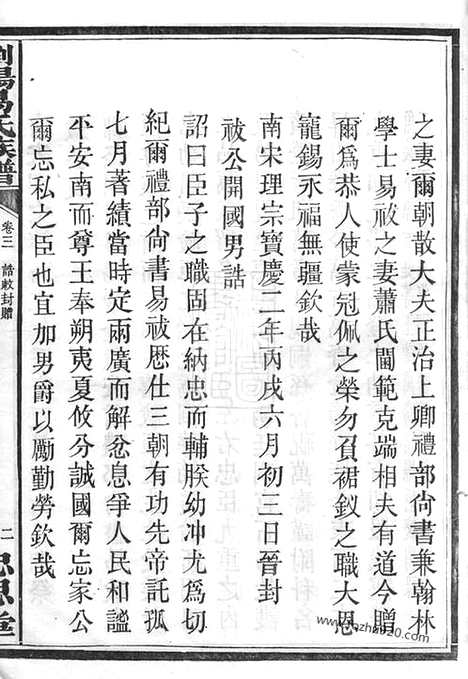 之妻爾朝散大夫正治上卿禮部尚書兼翰林
學士易祓之妻蕭氏閫範克端相夫有道今贈
爾爲恭人使蒙冠佩之榮勿負裙釵之職大恩
寵錫永福無疆欽哉
南宋理宗寶慶二年丙戌六月初三日晉封
祓公開國男誥
詔曰臣子之職固在納忠而輔朕幼冲尤爲切
紀爾禮部尚書易祓歷仕三朝有功先帝託孤
七月著績當時定兩廣而解忿息爭人民和謐
平安南而尊王奉朔夷夏攸分誠國爾忘家公
爾忘私之臣也宜加男爵以勵勤勞欽哉
瀏陽易氏族譜
卷三 誥敕封贈
二
忠恩堂